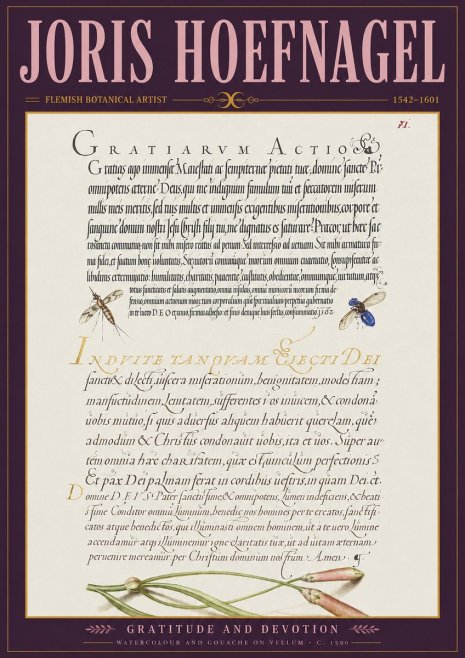 JORIS HOEFNAGEL
FLEMISH BOTANICAL ARTIST
1542–1601
71.
GRATIARVM ACTIO
Gratias ago immensæ Maiestati ac sempiternæ pietati tuæ, domine sancte Pr
omnipotens æterne Deus, qui me indignum famulum tuū et peccatorem miserum
nullis meis meritis, sed tuis multis et immensis exigentibus miserationibus, corpore et
sanguine domini nostri Jesu Christi filij tui, me dignatus es saturare. Precor, ut hæc sac
rosancta communio non sit mihi misero reatus ad penam: sed intercessio ad veniam. Sit mihi armatura fi-
ma fidei, et scutum bonæ voluntatis,
libidinis exterminatio: humilitatis, charitatis, patientiæ, castitatis, obedientiæ, omniumque, virtutum,
totius sanctitatis et salutis augmentatio, omnia
fensio, omnium actionum mearum
1562
INDVITE TANQVAM ELECTI DEI
sancti & dilecti, viscera miserationum, benignitatem, modestiam;
mansuetudinem, Lenitatem, sufferentes vos inuicem, & condonā
uobis mutuo, si quis aduersus aliquem habuerit querelam, quē
admodum & Christus condonauit uobis, ita et uos. Super au-
tem omnia hæc charitatem, quæ est uinculum perfectionis
Et pax Dei palmam ferat in cordibus uestris, in quam Dei. et.
Domine DEVS Pater sancte sume & omnipotens, Lumen indeficiens, & beati
ssime Conditor omniū Luminum, benedic nos homines per te creatos, sanctifi-
catos atque benedictos, qui illuminasti omnem hominem, ut a te uero Lumine
accendamur atqȝ illuminemur igne claritatis tuæ, ut ad uitam æternam
peruenire mereamur per Christum dominum nostrum. Amen. ¶
GRATITUDE AND DEVOTION
WATERCOLOUR AND GOUACHE ON VELLUM • C. 1590